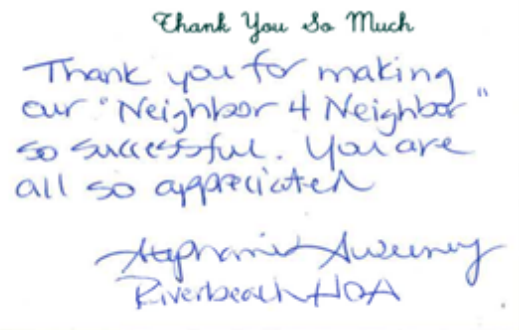 Thank You So Much
Thank you for making
our "Neighbor 4 Neighbor"
so successful. You are
all so appreciated
Stephanie Sweeney
Riverbeach HOA